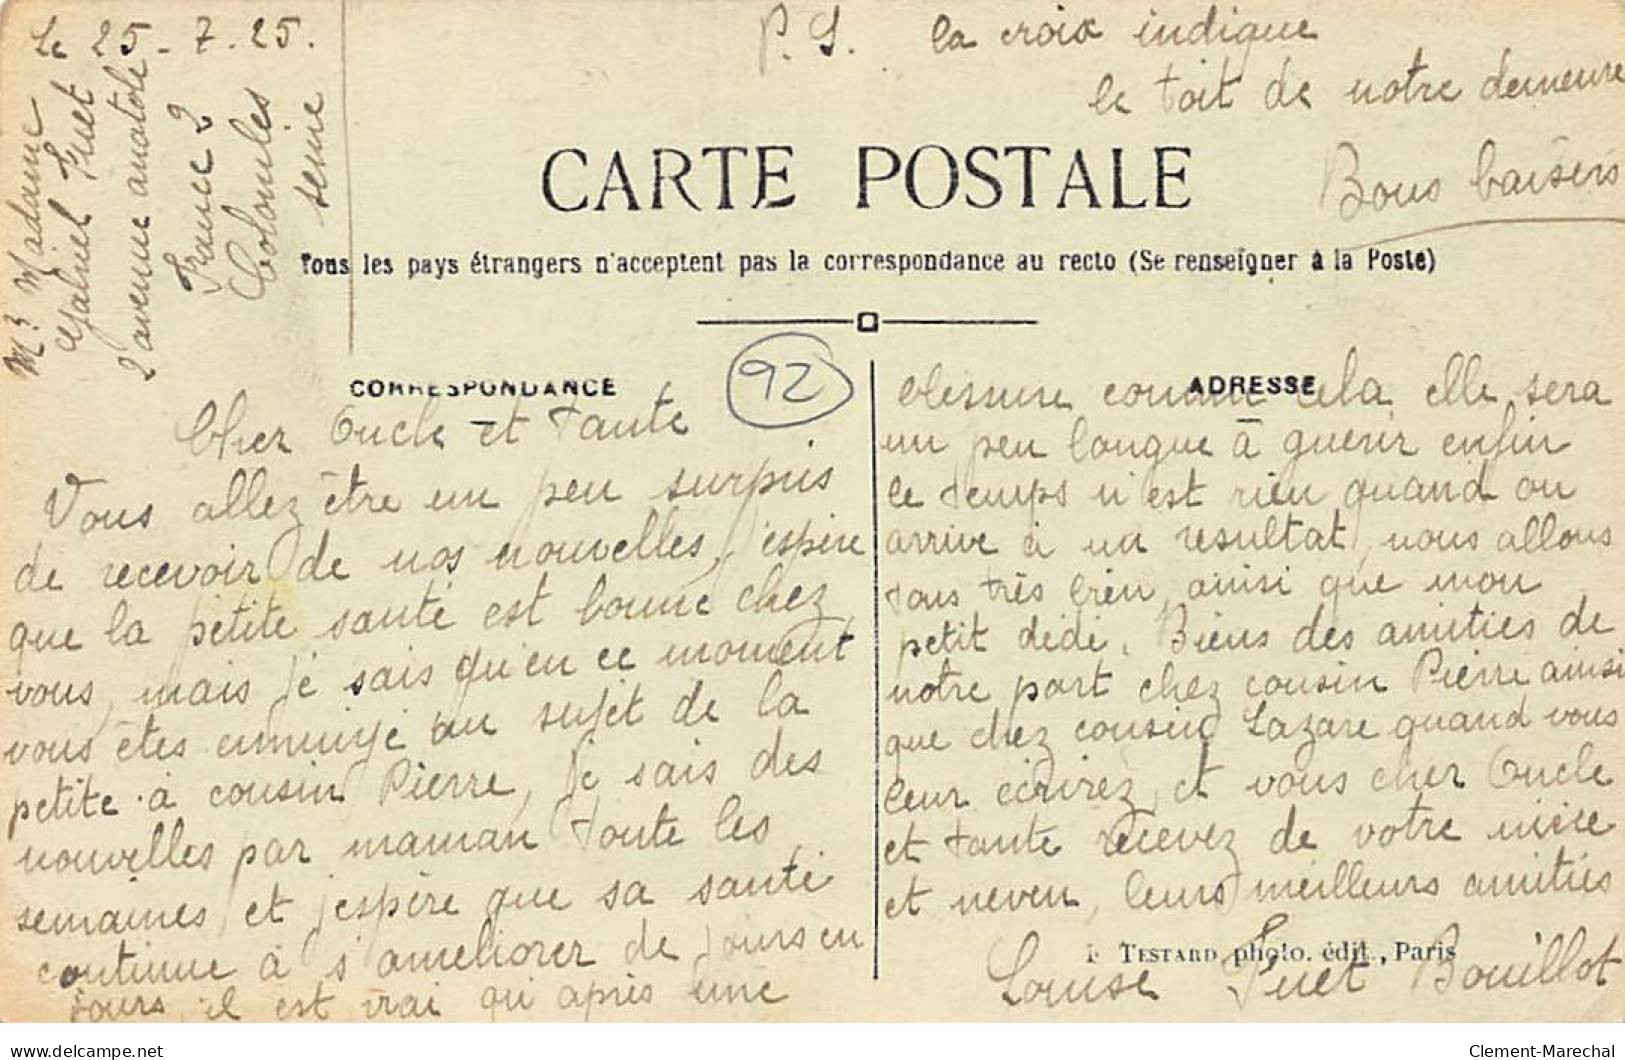 Le 25-7-25.
Mr Madame
Gabriel Fuet
2 avenue anatole
France 2
Colombes
seine
P.S. la croix indique
le toit de notre demeure
Bons baisers
CARTE POSTALE
Tous les pays étrangers n'acceptent pas la correspondance au recto (Se renseigner à la Poste)
CORRESPONDANCE
92
ADRESSE
Cher Oncle et tante
Vous allez être un peu surpris
de recevoir de nos nouvelles, j'espère
que la petite santé est bonne chez
vous, mais je sais qu'en ce moment
vous êtes ennuyé au sujet de la
petite à cousin Pierre, je sais des
nouvelles par maman toute les
semaines et j'espère que sa santé
continue à s'ameliorer de jours en
jours, il est vrai qu'après une
comme cela elle sera
un peu longue à guerir enfin
le temps n'est rien quand on
arrive à un resultat, nous allons
tous très bien, ainsi que mon
petit dédé. Biens des amitiés de
notre part chez cousin Pierre ainsi
que chez cousin Lazare quand vous
leur écrirez, et vous cher Oncle
et tante recevez de votre nièce
et neveu, leurs meilleurs amitiés
TESTARD photo. édit., Paris
Louise Fuet Bouillot
delcampe.net
Clement-Marechal